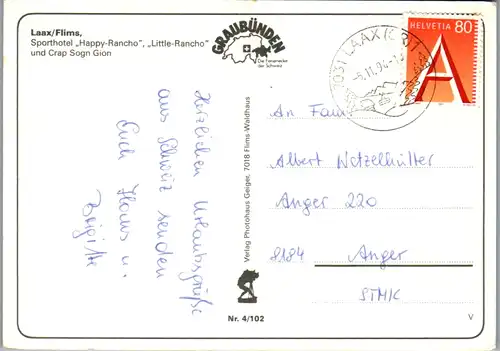 Laax/Flims,
Sporthotel „Happy-Rancho", „Little-Rancho"
und Crap Sogn Gion
GRAUBÜNDEN
Die Ferienecke
der Schweiz
HELVETIA 80
A
7031 LAAX
Herzlichen Urlaubsgrüße
aus Schweiz senden
Euch Hans u.
Brigitte
Verlag Photohaus Geiger, 7018 Flims-Waldhaus
An Fam
Albert
Anger 220
8184 Anger
STMK
Nr. 4/102
V